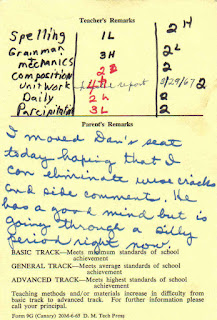 Teacher's Remarks
2H
Spelling 1L
Grammar 3H 2L
mechanics 2
Composition 2
Unit work report 5/29/67 2
Daily 2L 2
Participation 3L 2
Parent's Remarks
I moved Dan's seat
today hoping that I
can eliminate wise cracks
and side comments. He
has a good mind but is
going through a silly
period right now.
BASIC TRACK—Meets minimum standards of school
achievement
GENERAL TRACK—Meets average standards of school
achievement
ADVANCED TRACK—Meets highest standards of school
achievement
Teaching methods and/or materials increase in difficulty from
basic track to advanced track. For further information please
call your principal.
Form 9G (Canary) 20M-6-65 D. M. Tech Press